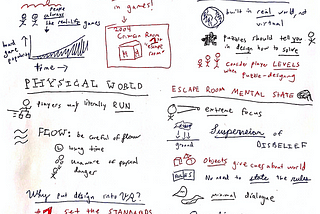 People
always
like real life games
in games!
2004
CRIMSON ROOM
"escape
room"
board game
popularity
time
PHYSICAL WORLD
players may literally RUN
FLOW: be careful of flow
losing time
unaware of physical
danger
Why put design into
SET the STANDARDS
built in real world, not
virtual
puzzles should tell you
in design how to solve
Consider player LEVELS
when puzzle-designing
ESCAPE ROOM MENTAL STATE
extreme focus
Suspension of
DISBELIEF
ground
Objects give cues about world
RULES
No need to state the rules
minimal dialogue